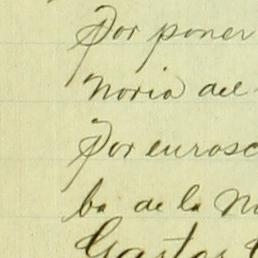 Por poner
noria del
Por eurosc
ba de la N
Gastos